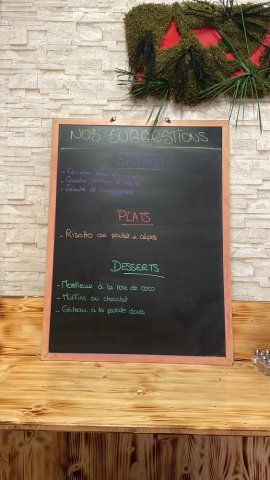 NOS SUGGESTIONS
ENTRÉES
- Quiche
- Quiche
- Velouté de champignons
PLATS
- Risotto au poulet & cèpes
DESSERTS
- Moelleux à la noix de coco
- Muffins au chocolat
- Gâteau à la patate douce